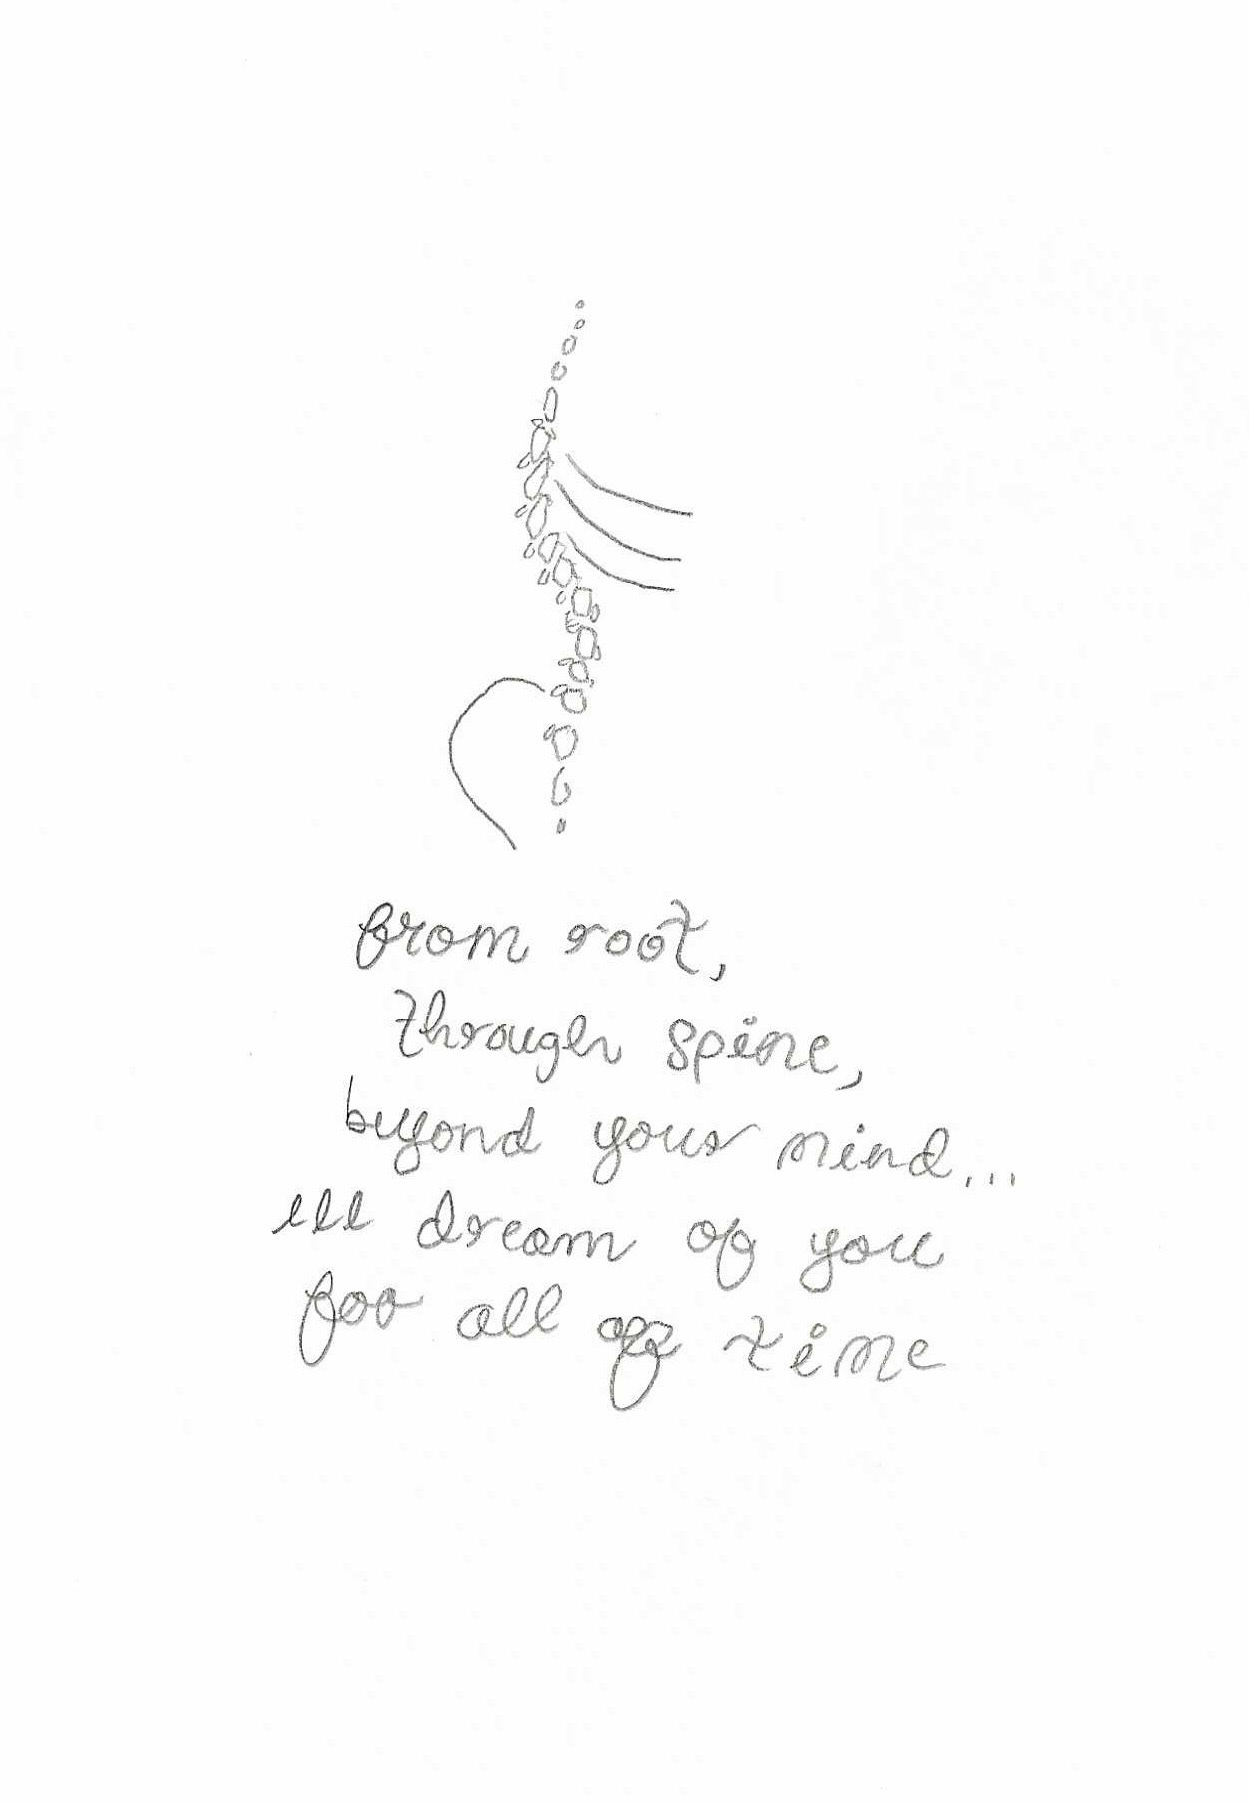 from root,
through spine,
beyond your mind...
ill dream of you
for all of time